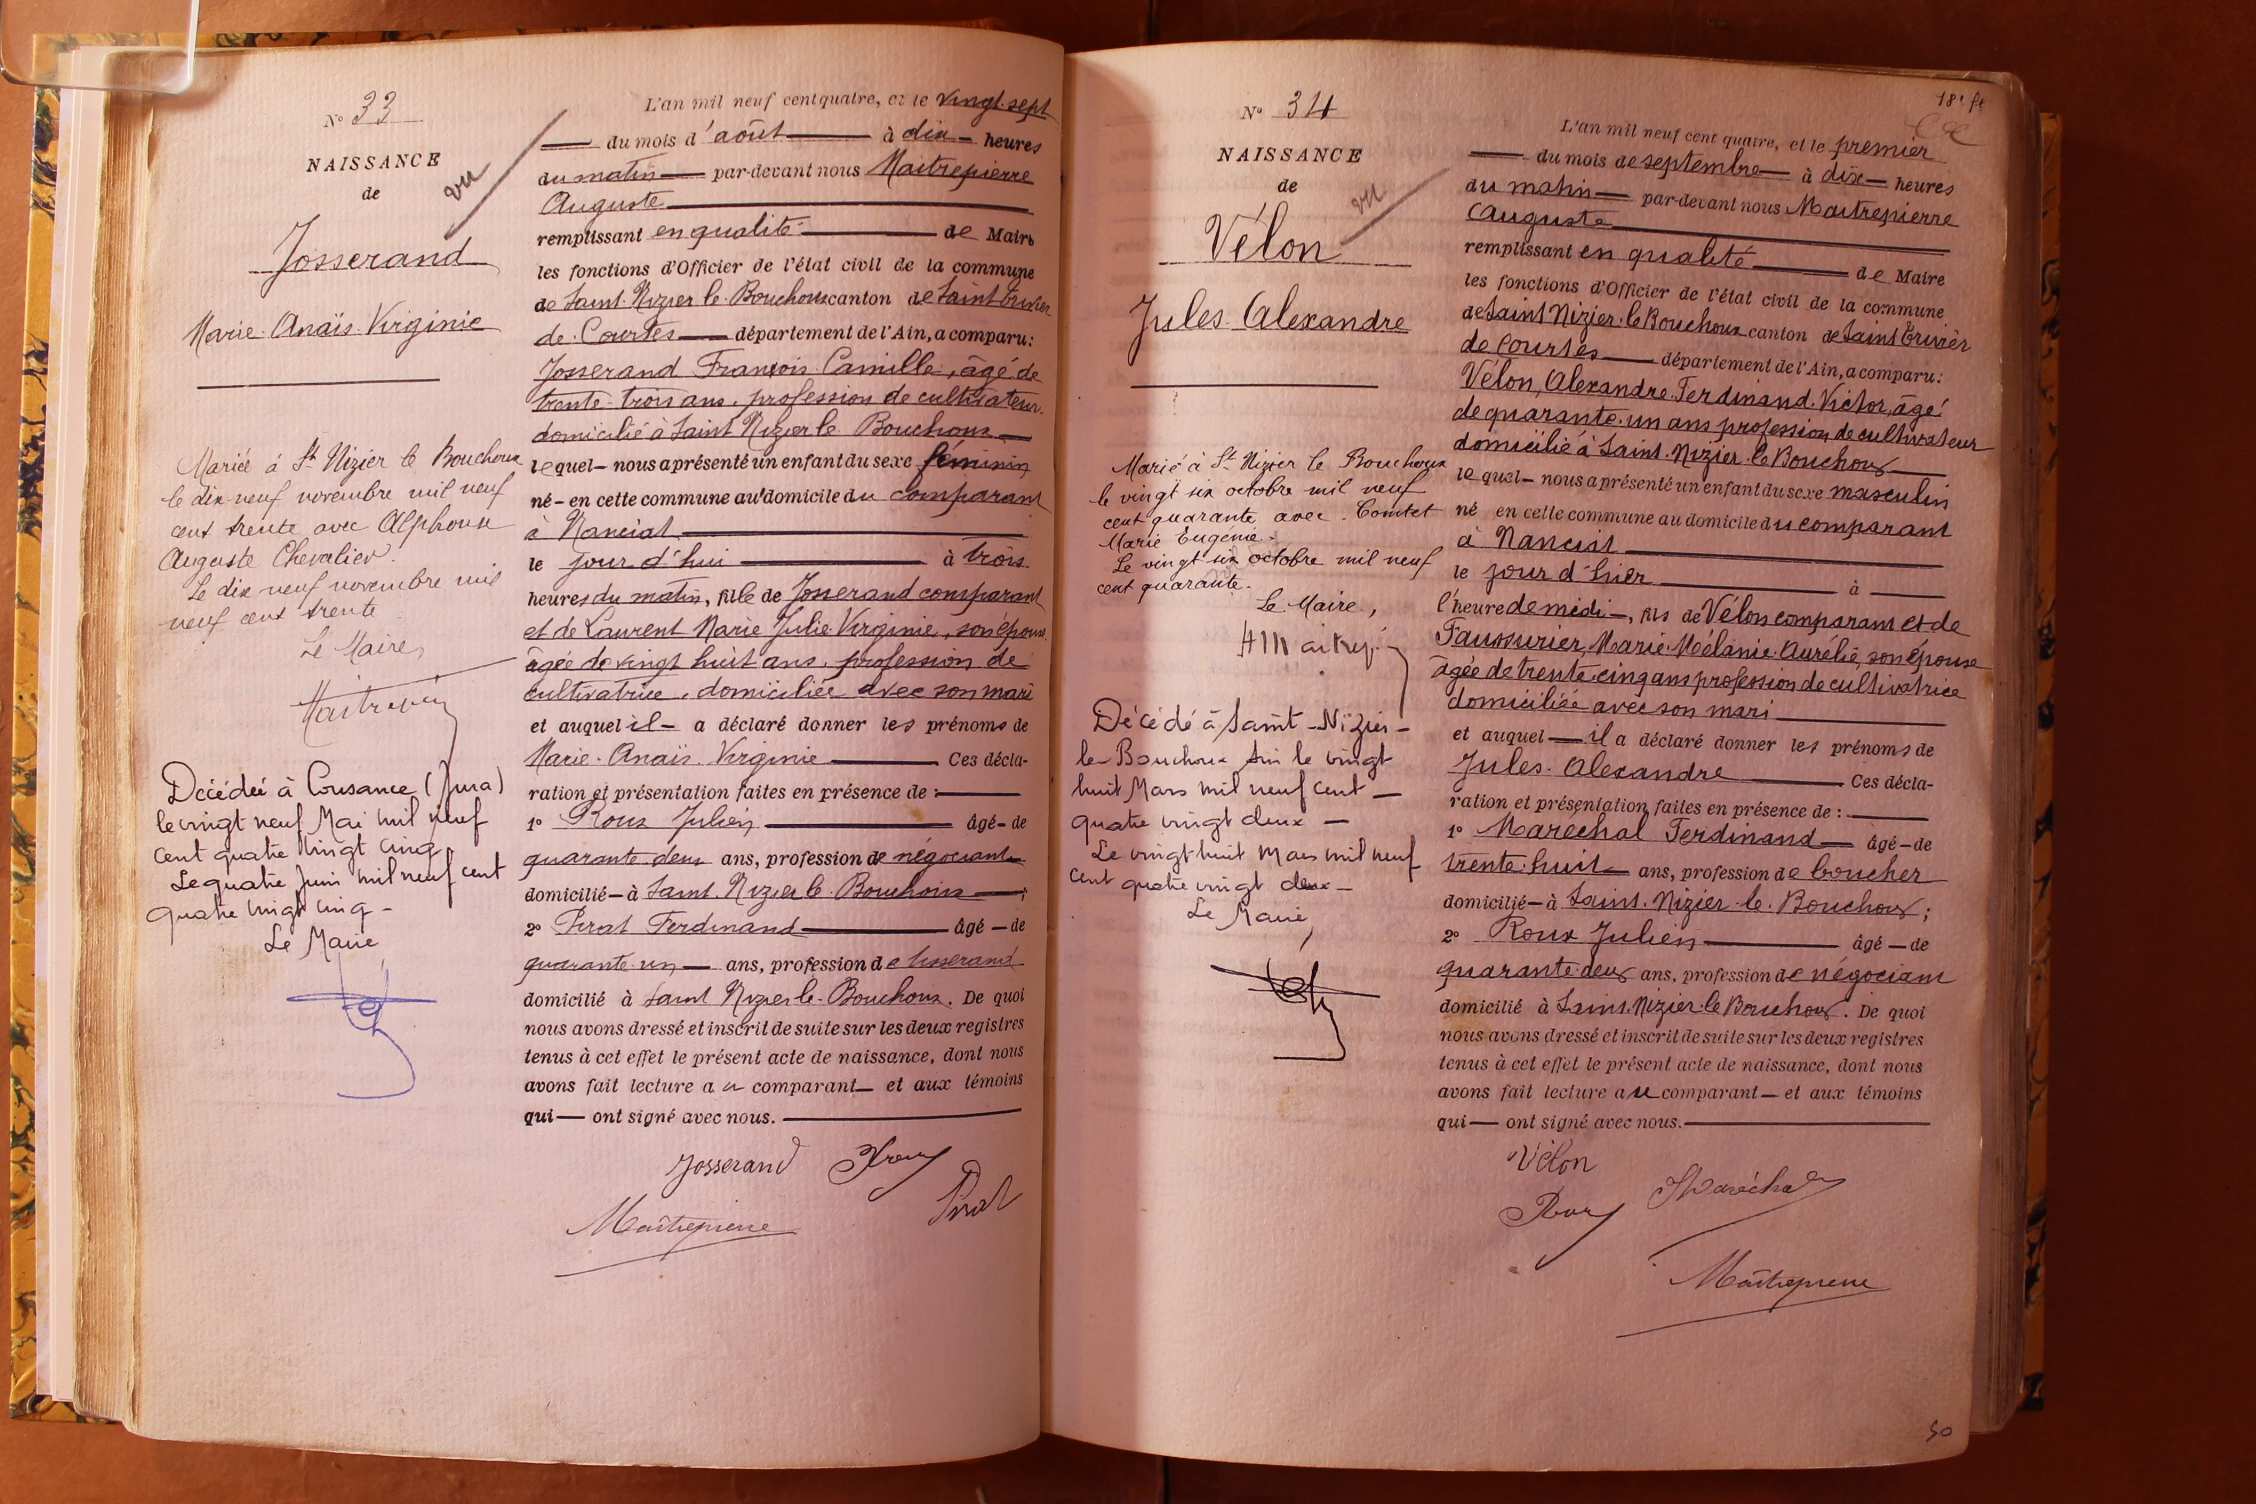 N° 33
NAISSANCE
de
vu
Josserand
Marie Anaïs Virginie
Mariée à St Nizier le Bouchoux
le dix-neuf novembre mil neuf
cent trente avec Alphonse
Auguste Chevalier.
Le dix neuf novembre mil
neuf cent trente
Le Maire,
Décédée à Cousance (Jura)
le vingt neuf Mai mil neuf
cent quatre vingt cinq
Le quatre Juin mil neuf cent
quatre vingt cinq -
Le Maire
L'an mil neuf cent quatre, et le vingt-sept
du mois d'août à dix heures
du matin par-devant nous Maitrepierre
Auguste
remplissant en qualité de Maire
les fonctions d'Officier de l'état civil de la commune
de Saint-Nizier-le-Bouchoux canton de Saint Trivier
de Courtes département de l'Ain, a comparu:
Josserand François Camille, âgé de
trente-trois ans, profession de cultivateur
domicilié à Saint Nizier le Bouchoux
lequel nous a présenté un enfant du sexe féminin
né en cette commune au domicile du comparant
à Nanciat
le jour d'hui à trois
heures du matin, fille de Josserand comparant
et de Laurent Marie Julie Virginie, son épouse
âgée de vingt huit ans, profession de
cultivatrice, domiciliée avec son mari
et auquel il a déclaré donner les prénoms de
Marie-Anaïs-Virginie Ces décla-
ration et présentation faites en présence de :
1° Roux Julien âgé de
quarante deux ans, profession de négociant
domicilié à Saint-Nizier-le-Bouchoux ;
2° Pirat Ferdinand âgé de
quarante-un ans, profession de tisserand
domicilié à Saint Nizier le-Bouchoux. De quoi
nous avons dressé et inscrit de suite sur les deux registres
tenus à cet effet le présent acte de naissance, dont nous
avons fait lecture au comparant et aux témoins
qui ont signé avec nous.
Josserand Roux
Pirat
Maitrepierre
18e ft
N° 34
NAISSANCE
de
vu
Vélon
Jules Alexandre
Marié à St Nizier le Bouchoux
le vingt six octobre mil neuf
cent quarante avec Comtet
Marie Eugénie.
Le vingt six octobre mil neuf
cent quarante.
Le Maire,
Décédé à Saint-Nizier-
le-Bouchoux Ain le vingt
huit Mars mil neuf cent
quatre vingt deux
Le vingt huit Mars mil neuf
cent quatre vingt deux
Le Maire,
L'an mil neuf cent quatre, et le premier
du mois de septembre à dix heures
du matin par-devant nous Maitrepierre
Auguste
remplissant en qualité de Maire
les fonctions d'Officier de l'état civil de la commune
de Saint Nizier-le Bouchoux canton de Saint Trivier
de Courtes département de l'Ain, a comparu:
Vélon, Alexandre-Ferdinand-Victor, âgé
de quarante-un ans profession de cultivateur
domicilié à Saint-Nizier-le Bouchoux
lequel nous a présenté un enfant du sexe masculin
né en cette commune au domicile du comparant
à Nanciat
le jour d'hier à
l'heure de midi, fils de Vélon comparant et de
Faussurier, Marie-Mélanie-Aurélie, son épouse
âgée de trente-cinq ans profession de cultivatrice
domiciliée avec son mari
et auquel il a déclaré donner les prénoms de
Jules-Alexandre Ces décla-
ration et présentation faites en présence de :
1° Maréchal Ferdinand âgé de
trente-huit ans, profession de boucher
domicilié à Saint-Nizier-le-Bouchoux ;
2° Roux Julien âgé de
quarante-deux ans, profession de négociant
domicilié à Saint-Nizier-le Bouchoux. De quoi
nous avons dressé et inscrit de suite sur les deux registres
tenus à cet effet le présent acte de naissance, dont nous
avons fait lecture au comparant et aux témoins
qui ont signé avec nous.
Vélon
Roux Maréchal
Maitrepierre
50